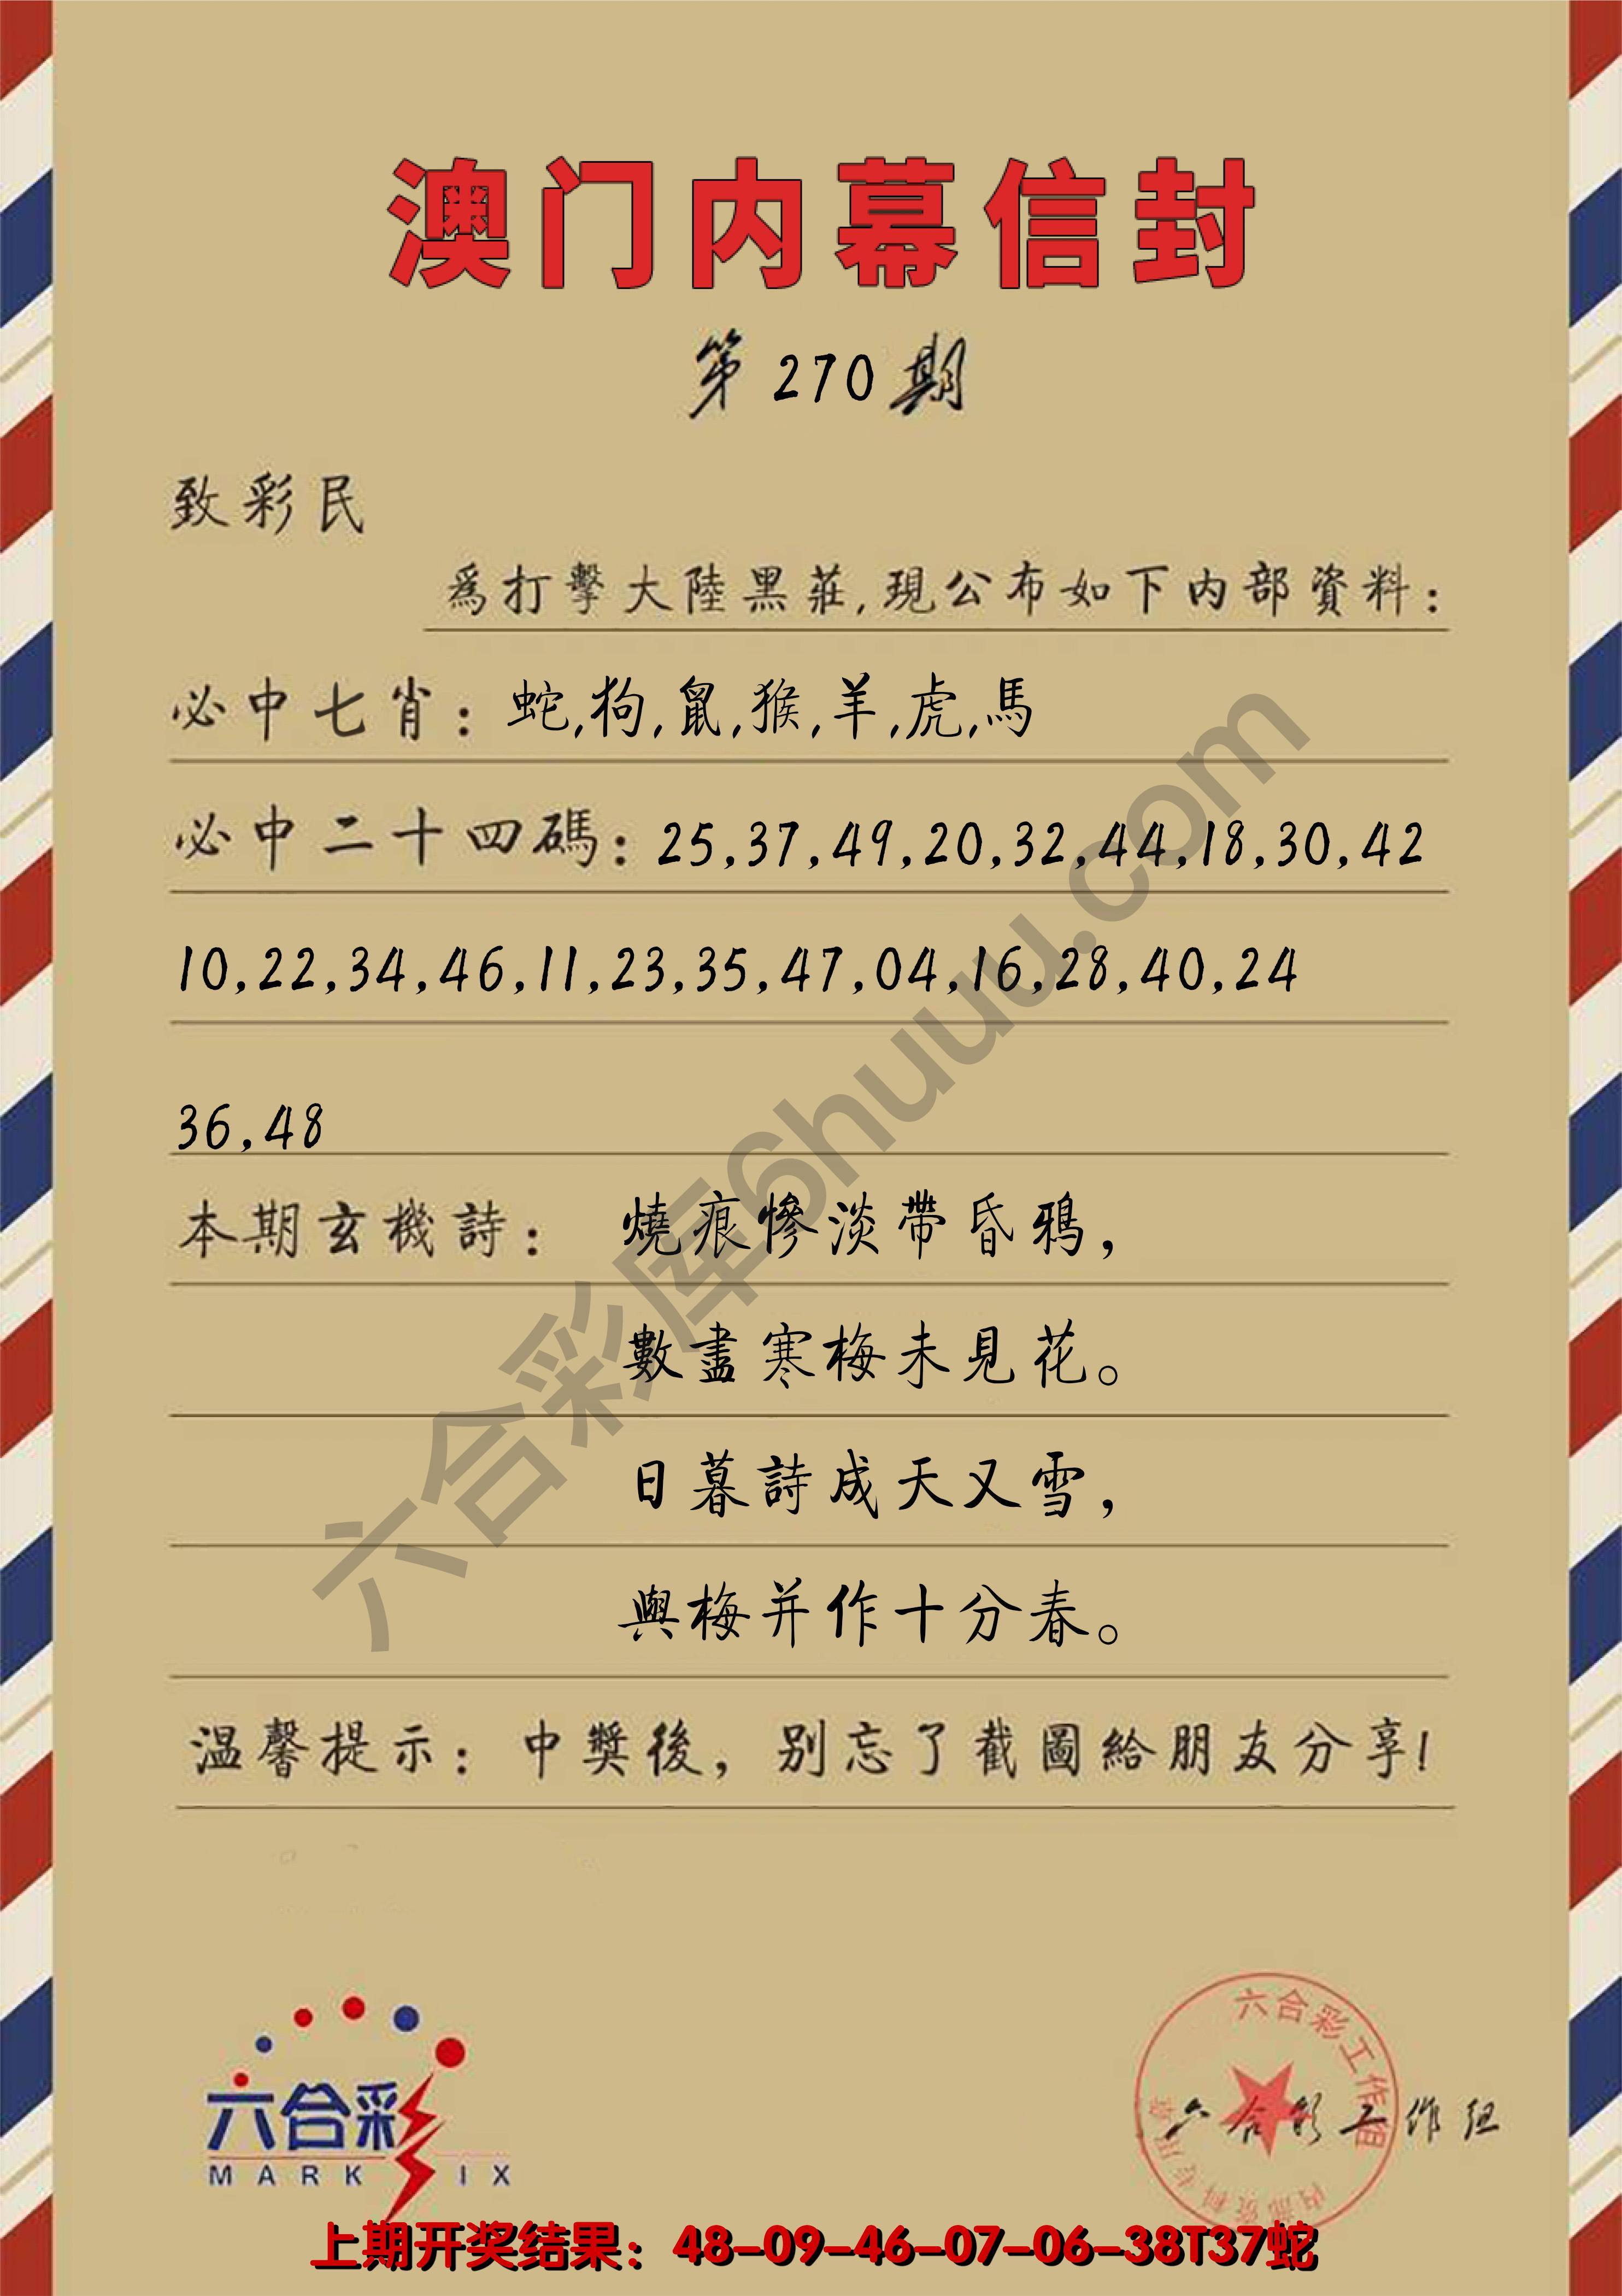 澳门内幕信封
第270期
致彩民
爲打擊大陸黑莊,現公布如下内部資料:
必中七肖: 蛇,狗,鼠,猴,羊,虎,馬
必中二十四碼: 25,37,49,20,32,44,18,30,42
10,22,34,46,11,23,35,47,04,16,28,40,24
36,48
本期玄機詩: 燒痕慘淡帶昏鴉,
數盡寒梅未見花。
日暮詩成天又雪,
與梅并作十分春。
温馨提示: 中獎後, 别忘了截圖給朋友分享!
六合彩库6huuu.com
六合彩
MARK IX
六合彩工作组
内部资料专用章
六合彩工作组
上期开奖结果: 48-09-46-07-06-38T37蛇